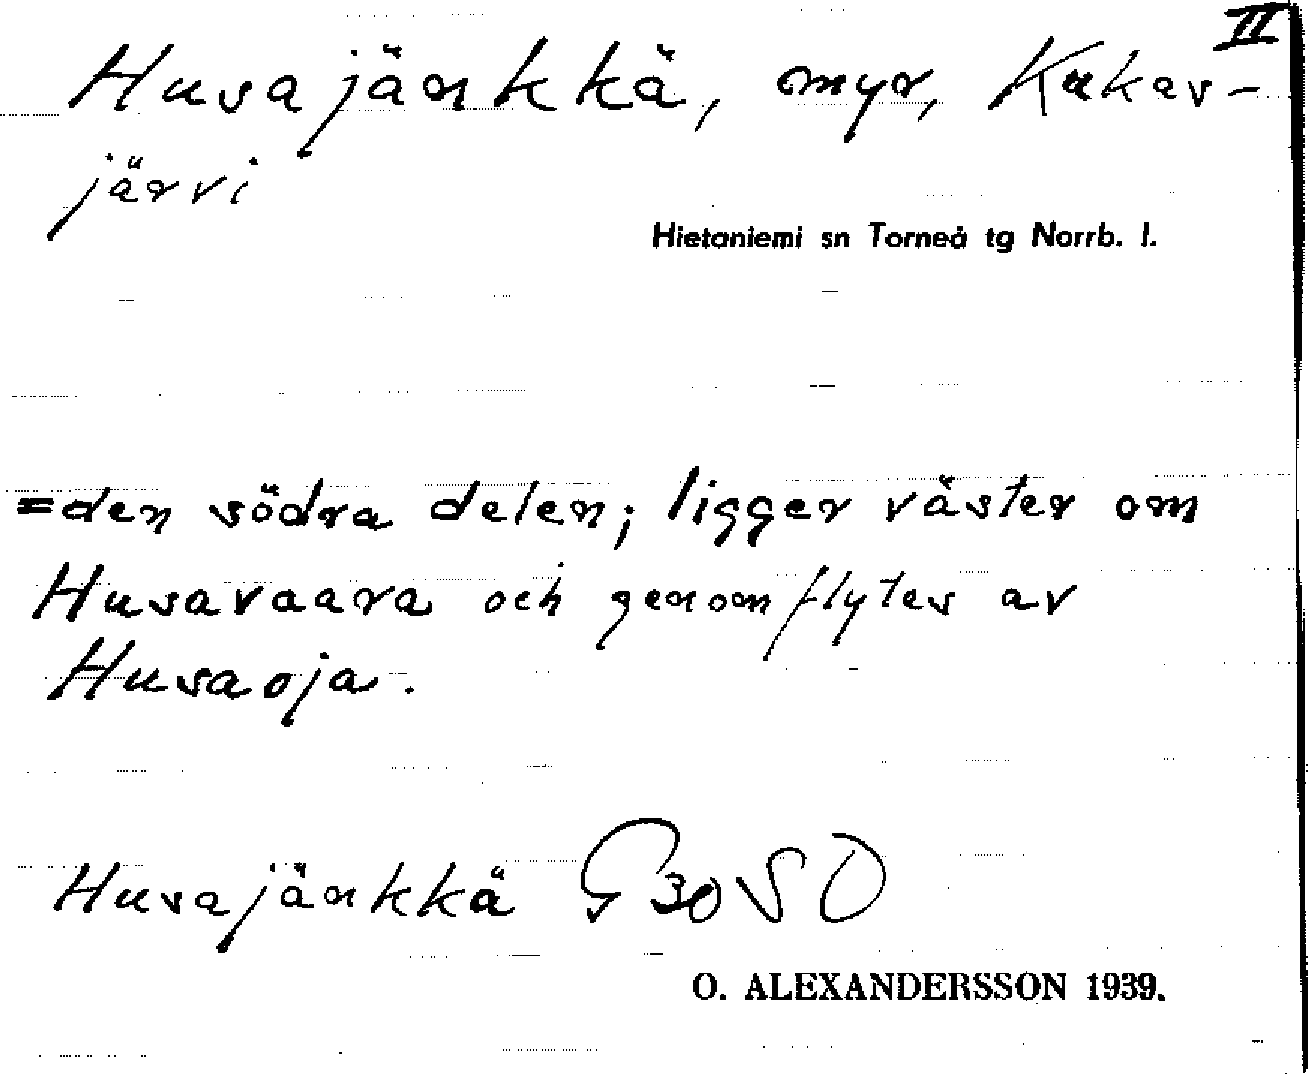 II
Husajänkkä, myr, Kukas-
järvi
Hietaniemi sn Torneå tg Norrb. l.
=den södra delen; ligger väster om
Husavaara och genomflytes av
Husaoja.
Husajänkkä G30SO
O. ALEXANDERSSON 1939.